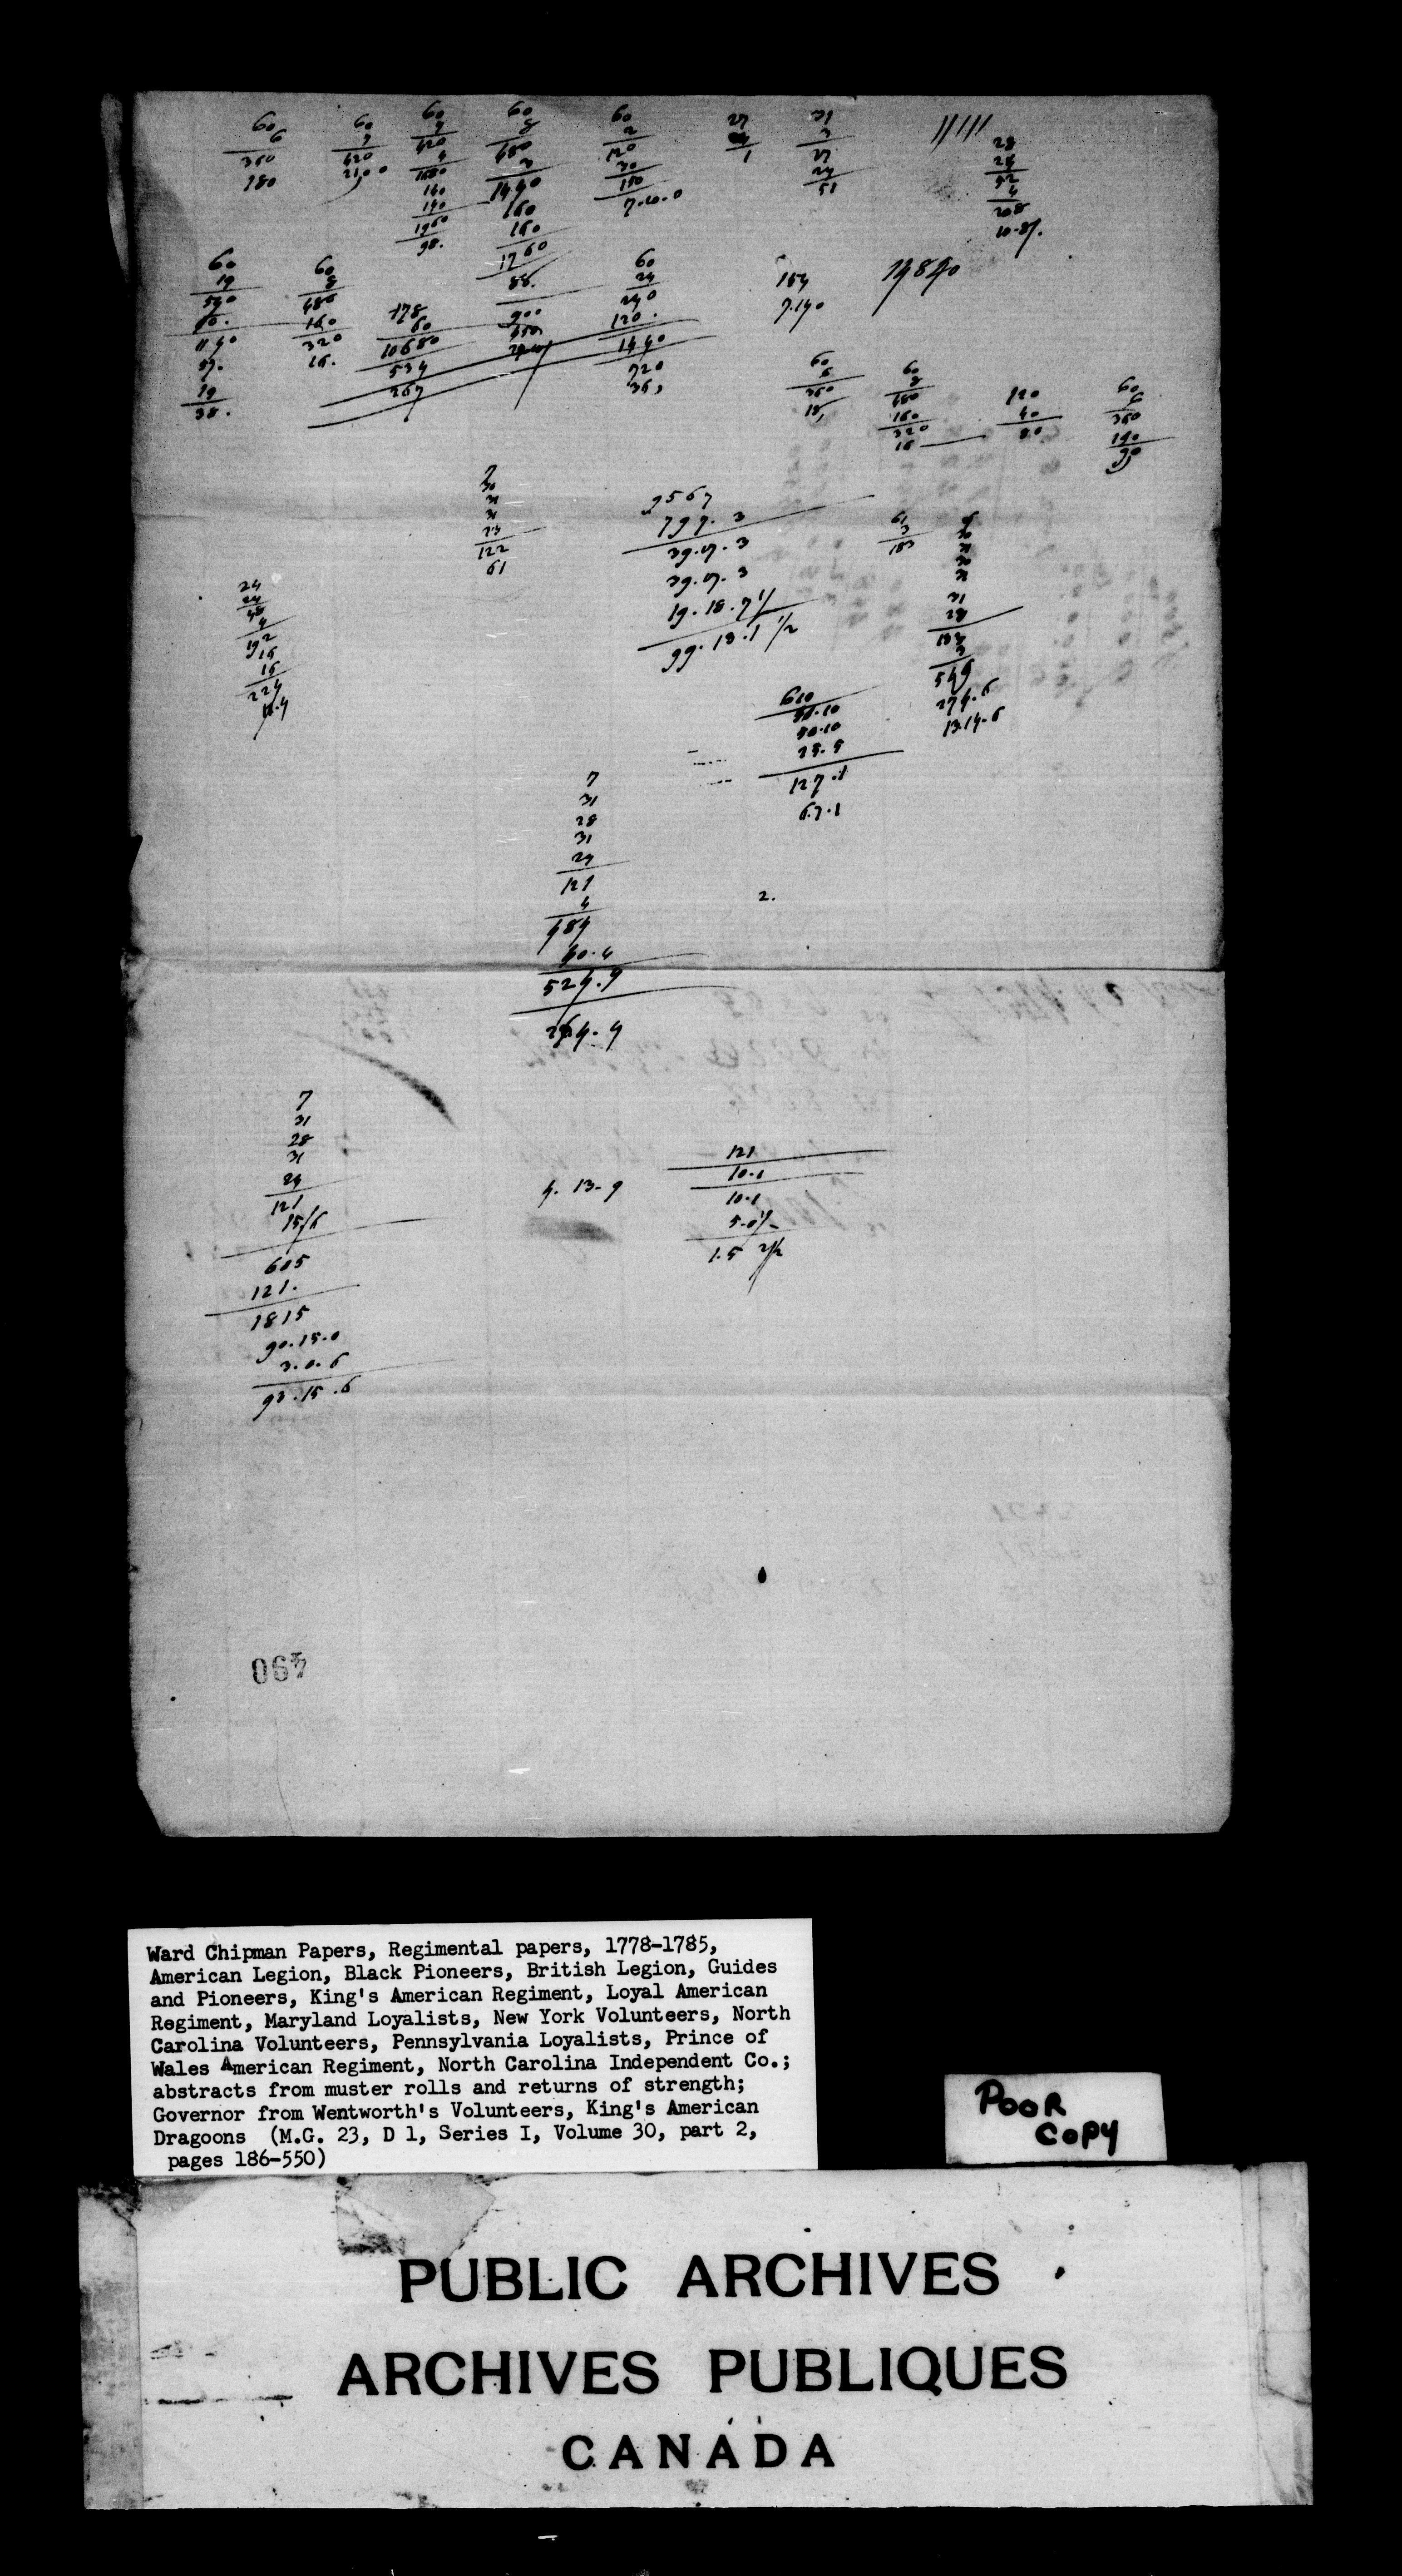 60
6
360
180
60
7
420
2100
60
7
420
4
1680
140
140
1960
98.
60
8
480
3
1440
160
160
1760
88.
60
2
120
30
150
7.10.0
27
24
51
28
24
52
4
208
10.8/.
60
19
540
60.
1140
57.
19
38.
60
8
480
160
320
16.
178
60
10680
534
267
900
60
24
240
120.
1440
720
36,
154
7.140
60
6
360
18,
60
8
480
160
320
16
120
40
80
60
6
360
180
90
122
61
9567
797.3
39.17.3
39.17.3
19.18.7½
99.13.1½
61
3
183
183
3
549
274.6
13.14.6
24
24
48
4
192
16
16
224
11.4
610
50.10
50.10
25.5
127.1
6.7.1
7
31
28
31
24
121
4
484
40.4
524.4
264.4
2.
7
31
28
31
24
121
15/6
605
121.
1815
90.15.0
3.0.6
93.15.6
4.13.9
121
10.1
10.1
5.0½
1.5 2½
490
Ward Chipman Papers, Regimental papers, 1778-1785,
American Legion, Black Pioneers, British Legion, Guides
and Pioneers, King's American Regiment, Loyal American
Regiment, Maryland Loyalists, New York Volunteers, North
Carolina Volunteers, Pennsylvania Loyalists, Prince of
Wales American Regiment, North Carolina Independent Co.;
abstracts from muster rolls and returns of strength;
Governor from Wentworth's Volunteers, King's American
Dragoons (M.G. 23, D 1, Series I, Volume 30, part 2,
pages 186-550)
POOR
COPY
PUBLIC ARCHIVES
ARCHIVES PUBLIQUES
CANADA